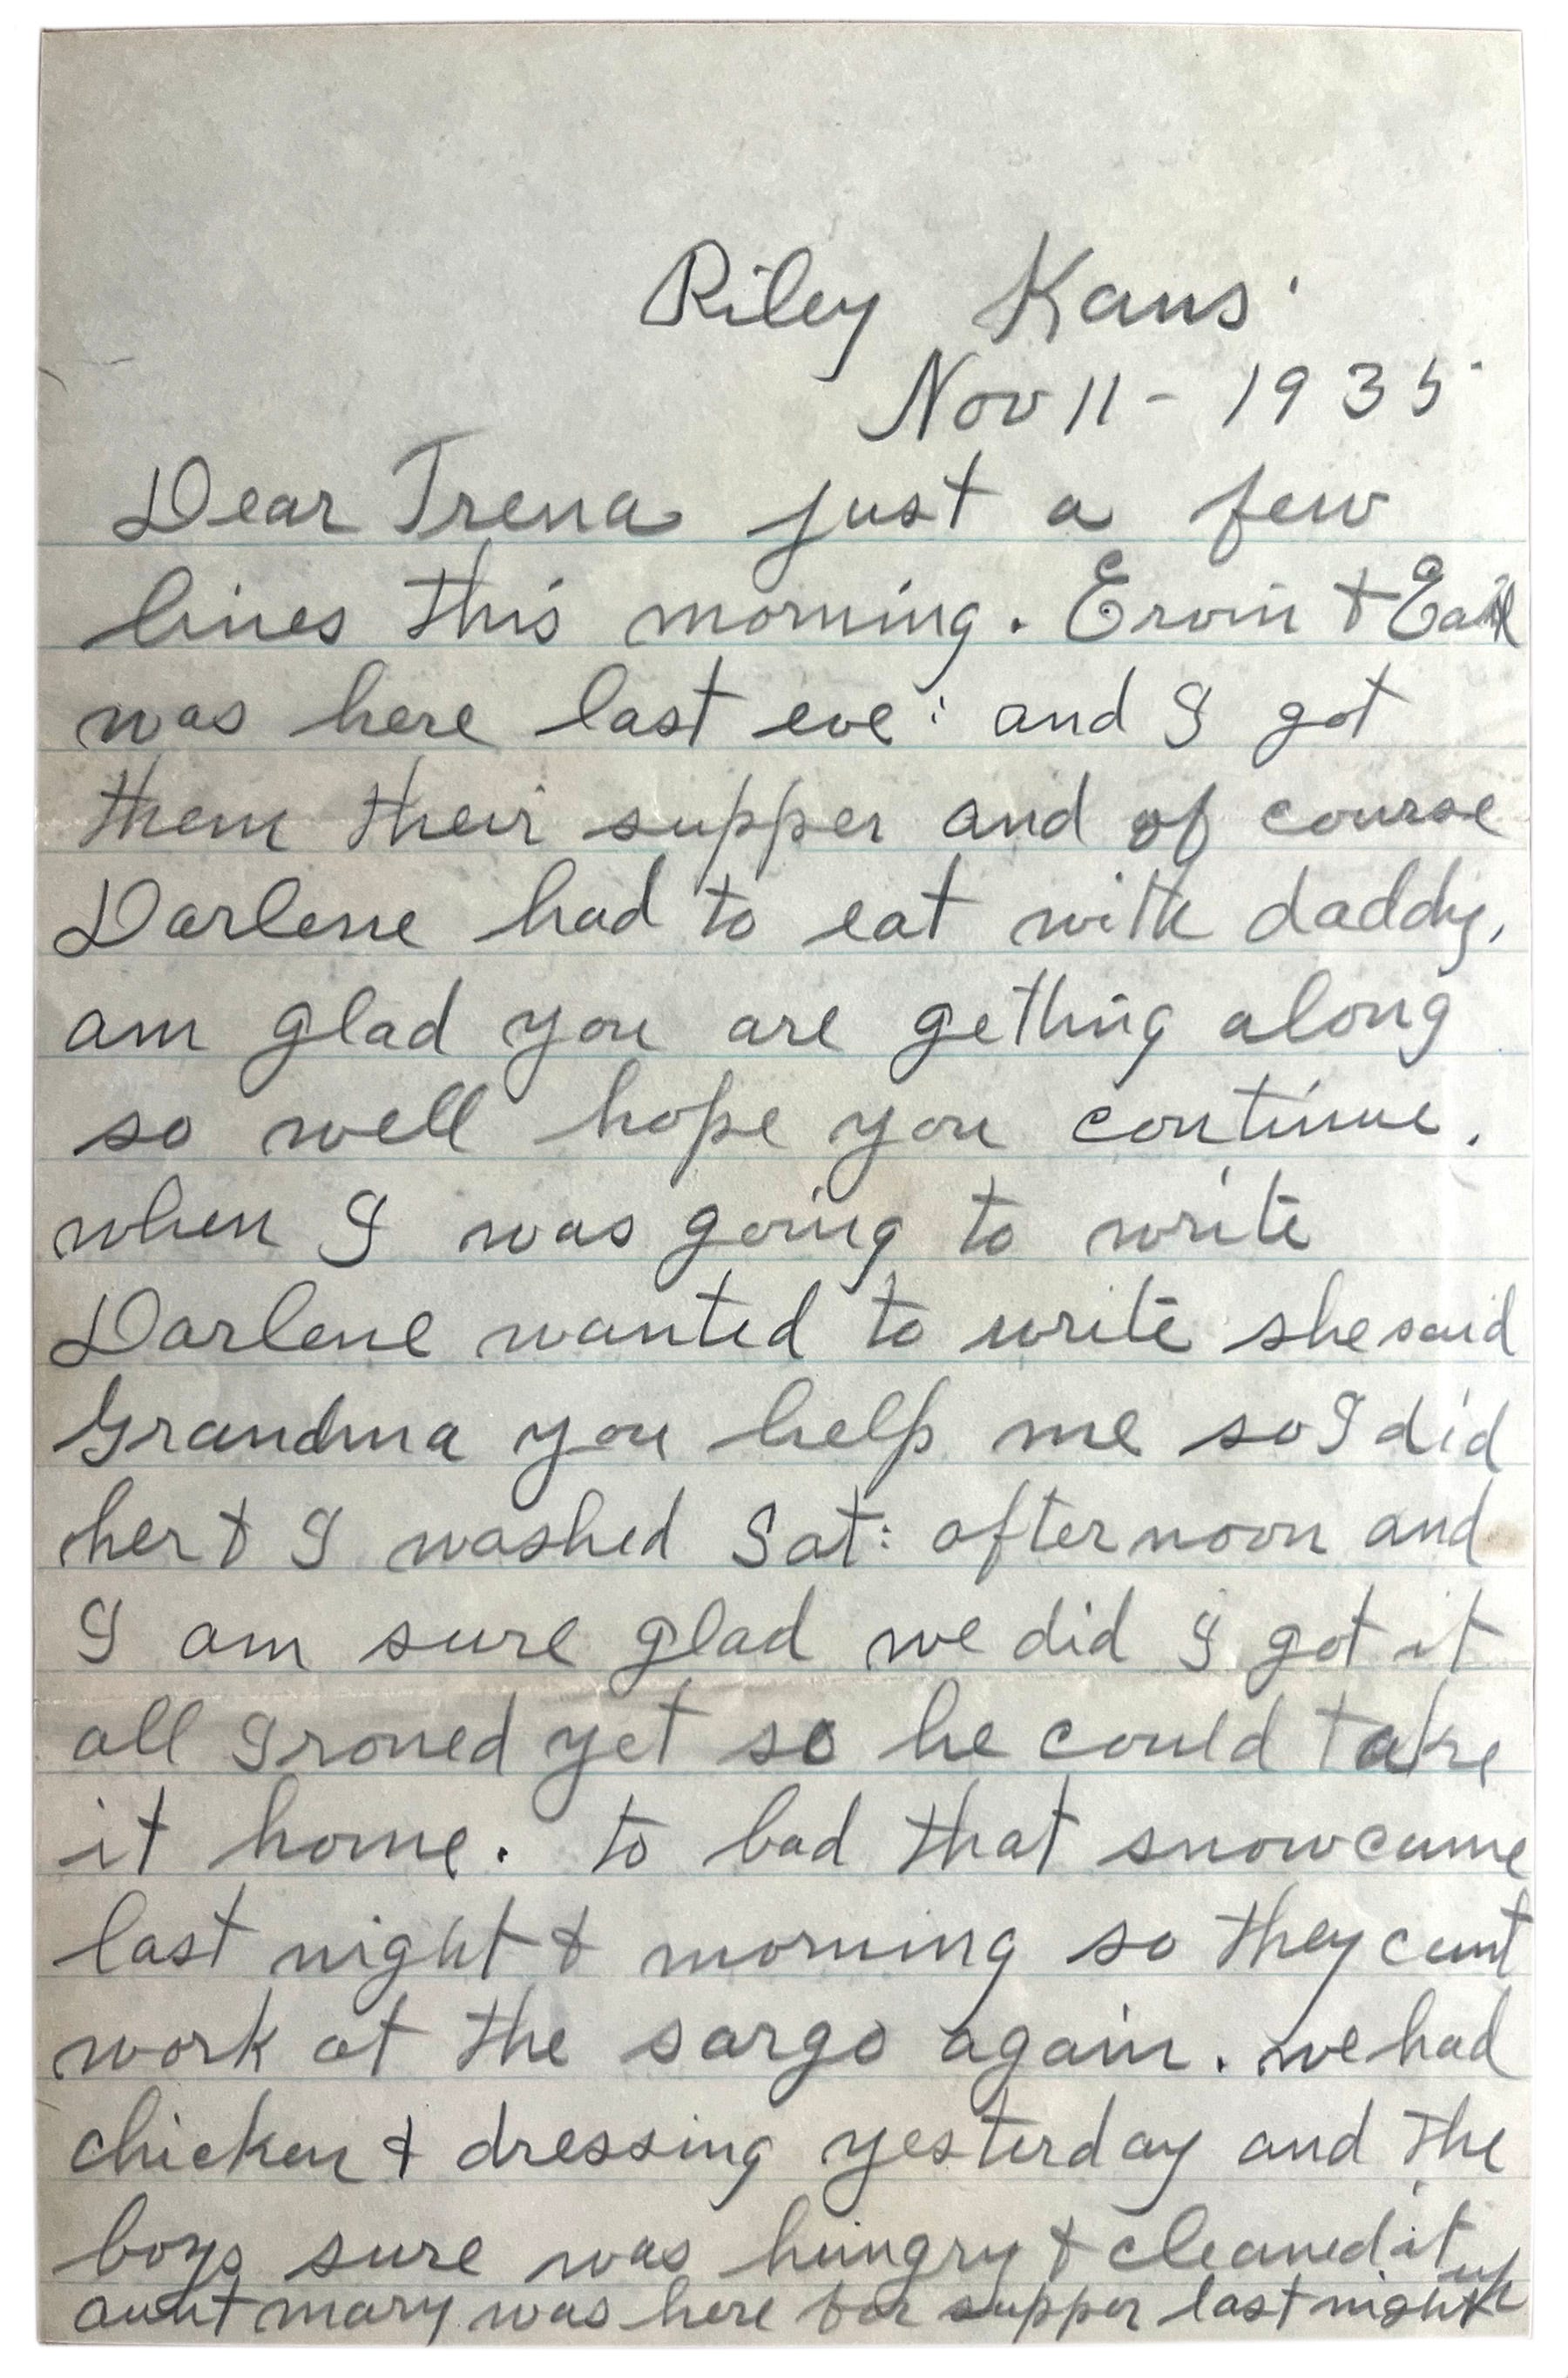 Riley Kans.
Nov 11 - 1935
Dear Trena just a few
lines this morning. Ervin & Earl
was here last eve: and I got
them their supper and of course
Darlene had to eat with daddy,
am glad you are getting along
so well hope you continue.
when I was going to write
Darlene wanted to write she said
Grandma you help me so I did
her & I washed Sat: afternoon and
I am sure glad we did I got it
all Ironed yet so he could take
it home. to bad that snow came
last night & morning so they cant
work at the sargo again. we had
chicken & dressing yesterday and the
boys sure was hungry & cleaned it up
aunt mary was here for supper last night